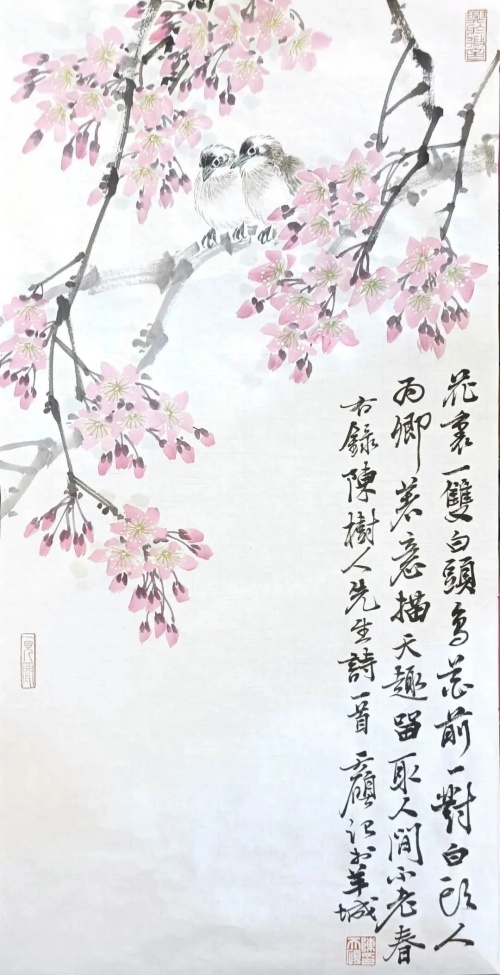 花裏一雙白頭鳥花前一對白頭人
為卿着意描天趣留取人間不老春
右錄陳樹人先生詩一首 天順記於羊城